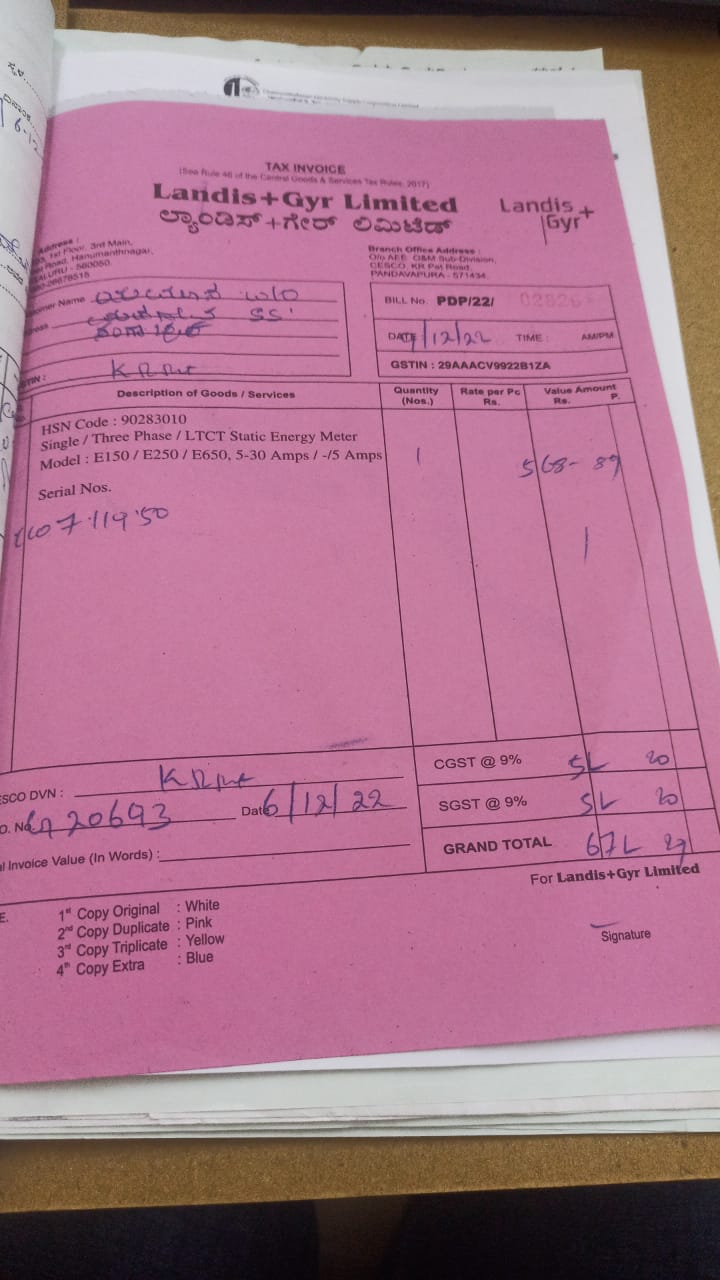 TAX INVOICE
(See Rule 46 of the Central Goods & Services Tax Rules, 2017)
Landis+Gyr Limited
ಲ್ಯಾಂಡಿಸ್+ಗೇರ್ ಲಿಮಿಟೆಡ್
Landis+
Gyr
Address :
1st Floor, 3rd Main,
Road, Hanumanthnagar,
560050
Branch Office Address :
O/o AEE, O&M Sub-Division,
CESCO, KR Pet Road,
PANDAVAPURA - 571434
Name W/O
SS'
KRPet
BILL No. PDP/22/ 02826
DATE 7/12/22 TIME : AM/PM
GSTIN : 29AAACV9922B1ZA
Description of Goods / Services
Quantity (Nos.)
Rate per Pc Rs.
Value Amount Rs. P.
HSN Code : 90283010
Single / Three Phase / LTCT Static Energy Meter
Model : E150 / E250 / E650, 5-30 Amps / -/5 Amps 1 568-89
Serial Nos.
07 119 50
CGST @ 9% 51 20
SGST @ 9% 51 20
GRAND TOTAL 671 29
DVN : KRPet
20693 Date 6/12/22
Invoice Value (In Words) :
For Landis+Gyr Limited
1st Copy Original : White
2nd Copy Duplicate : Pink
3rd Copy Triplicate : Yellow
4th Copy Extra : Blue
Signature